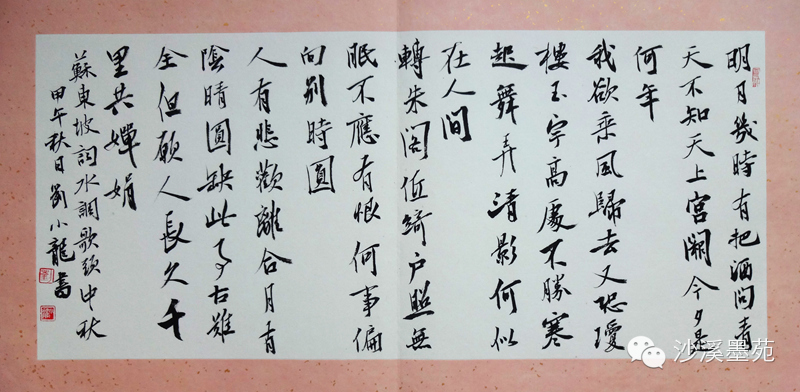 明月幾時有把酒問青
天不知天上宮闕今夕是
何年
我欲乘風歸去又恐瓊
樓玉宇高處不勝寒
起舞弄清影何似
在人間
轉朱閣低綺户照無
眠不應有恨何事偏
向別時圓
人有悲歡離合月有
陰晴圓缺此事古難
全但願人長久千
里共嬋娟
蘇東坡詞水調歌頭中秋
甲午秋日劉小龍書
沙溪墨苑